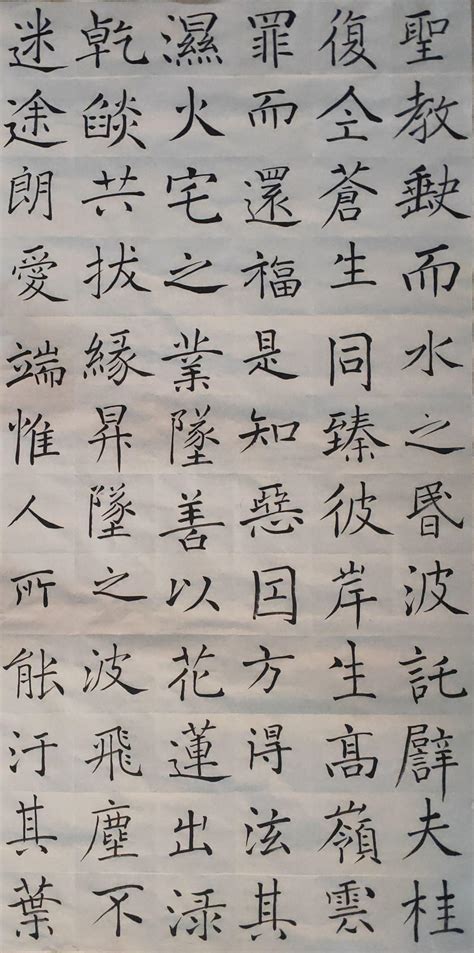 聖教缺而
復仝蒼生
罪而還福
濕火宅之
乾燄共拔
迷途朗愛
水之昬波
同臻彼岸
是知惡囙
業墜善以
緣昇墜之
端惟人所
託譬夫桂
生高嶺雲
方得泫其
花蓮出淥
波飛塵不
能汙其葉